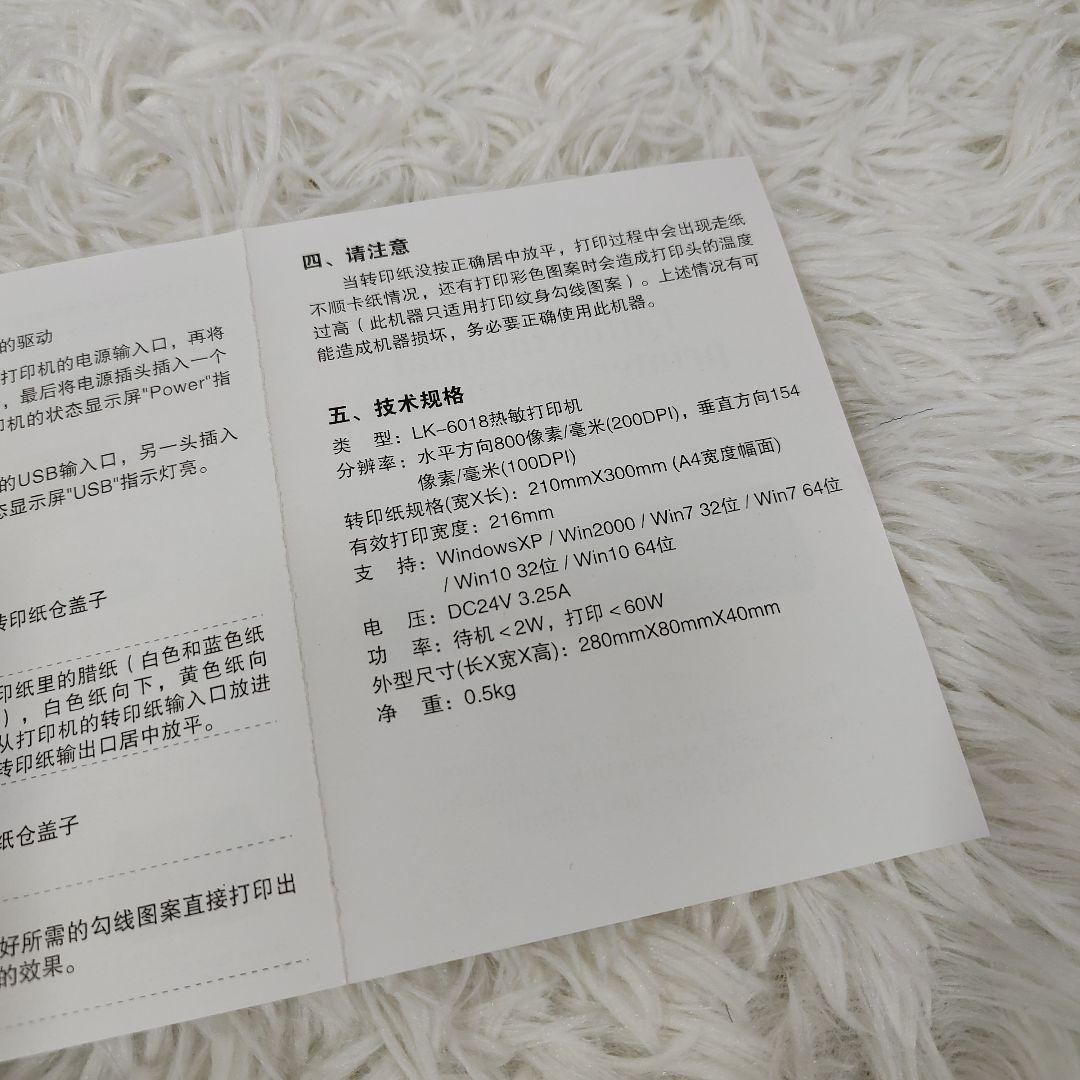 的驱动
打印机的电源输入口，再将
，最后将电源插头插入一个
印机的状态显示屏"Power"指
的USB输入口，另一头插入
态显示屏"USB"指示灯亮。
转印纸仓盖子
印纸里的腊纸（白色和蓝色纸
），白色纸向下，黄色纸向
从打印机的转印纸输入口放进
转印纸输出口居中放平。
纸仓盖子
好所需的勾线图案直接打印出
的效果。
四、请注意
当转印纸没按正确居中放平，打印过程中会出现走纸
不顺卡纸情况，还有打印彩色图案时会造成打印头的温度
过高（此机器只适用打印纹身勾线图案）。上述情况有可
能造成机器损坏，务必要正确使用此机器。
五、技术规格
类 型：LK-6018热敏打印机
分辨率：水平方向800像素/毫米(200DPI)，垂直方向154
像素/毫米(100DPI)
转印纸规格(宽X长)：210mmX300mm (A4宽度幅面)
有效打印宽度：216mm
支 持：WindowsXP / Win2000 / Win7 32位 / Win7 64位
/ Win10 32位 / Win10 64位
电 压：DC24V 3.25A
功 率：待机＜2W，打印＜60W
外型尺寸(长X宽X高)：280mmX80mmX40mm
净 重：0.5kg